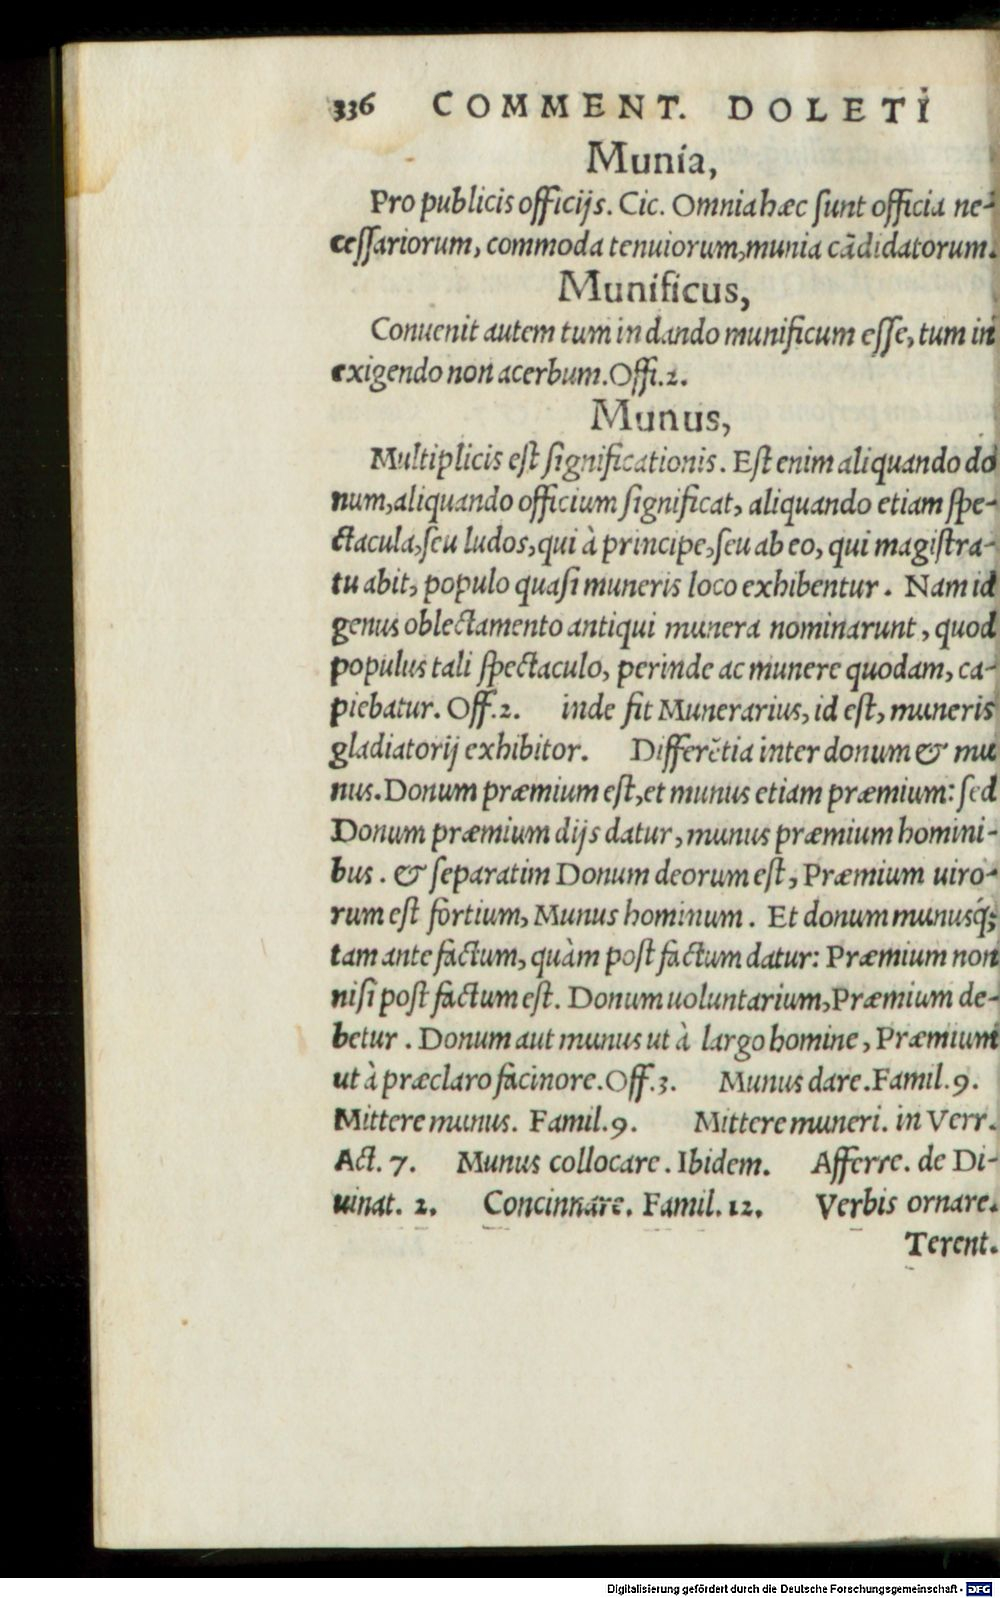 336 COMMENT. DOLETI
Munia,
Pro publicis officijs. Cic. Omnia hæc ſunt officia ne-
ceſſariorum, commoda tenuiorum, munia cãdidatorum.
Munificus,
Conuenit autem tum in dando munificum eſſe, tum in
exigendo non acerbum. Offi. 2.
Munus,
Multiplicis eſt ſignificationis. Eſt enim aliquando do
num, aliquando officium ſignificat, aliquando etiam ſpe-
ctacula, ſeu ludos, qui à principe, ſeu ab eo, qui magiſtra-
tu abit, populo quaſi muneris loco exhibentur. Nam id
genus oblectamento antiqui munera nominarunt, quod
populus tali ſpectaculo, perinde ac munere quodam, ca-
piebatur. Off. 2. inde fit Munerarius, id eſt, muneris
gladiatorij exhibitor. Differẽtia inter donum & mu
nus. Donum præmium eſt, et munus etiam præmium: ſed
Donum præmium dijs datur, munus præmium homini-
bus. & ſeparatim Donum deorum eſt, Præmium uiro-
rum eſt fortium, Munus hominum. Et donum munusq́;
tam ante factum, quàm poſt factum datur: Præmium non
niſi poſt factum eſt. Donum uoluntarium, Præmium de-
betur. Donum aut munus ut à largo homine, Præmium
ut à præclaro facinore. Off. 3. Munus dare. Famil. 9.
Mittere munus. Famil. 9. Mittere muneri. in Verr.
Act. 7. Munus collocare. Ibidem. Afferre. de Di-
uinat. 2. Concinnare. Famil. 12. Verbis ornare.
Terent.
Digitalisierung gefördert durch die Deutsche Forschungsgemeinschaft - DFG